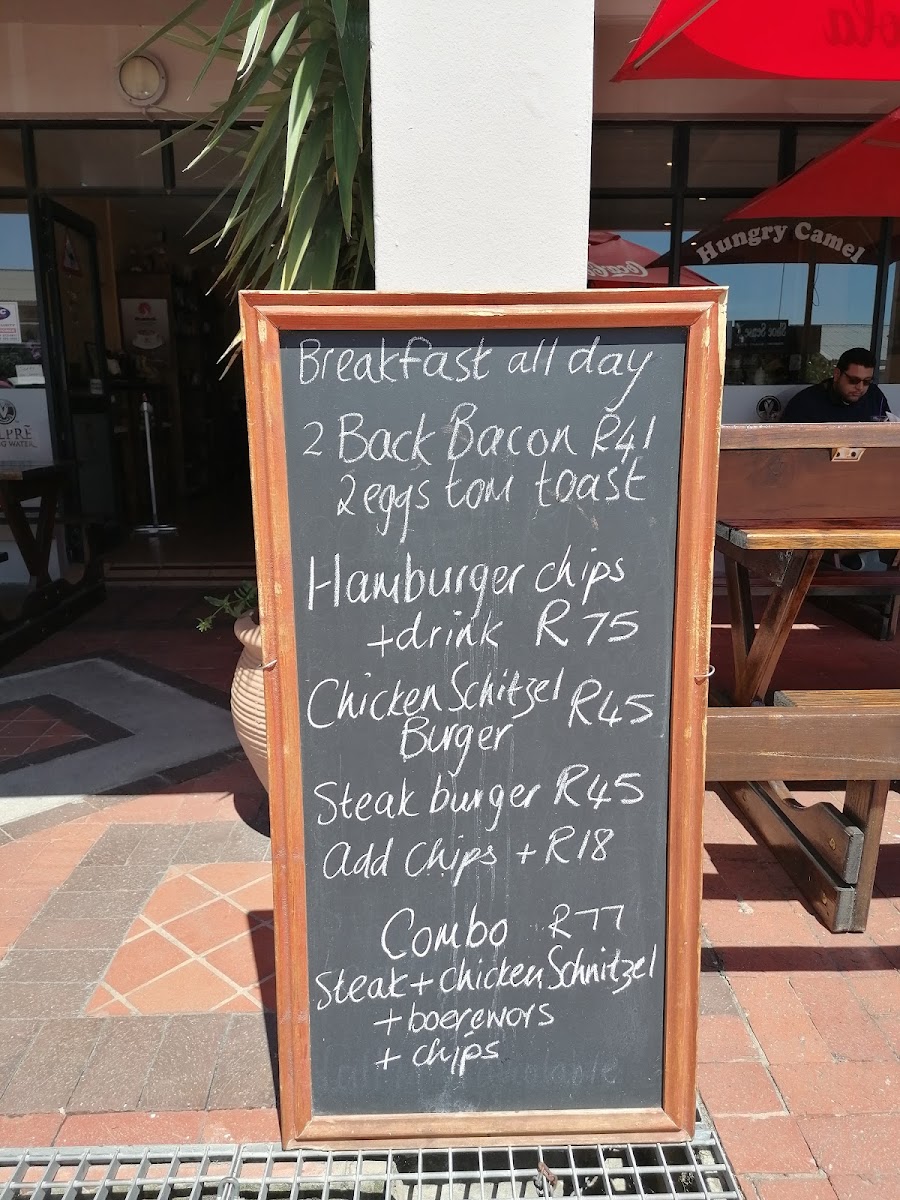 Hungry Camel
Breakfast all day
2 Back Bacon R41
2 eggs tom toast
Hamburger chips
+ drink R75
Chicken Schitzel R45
Burger
Steak burger R45
add chips + R18
Combo R77
Steak + chicken Schnitzel
+ boerewors
+ chips